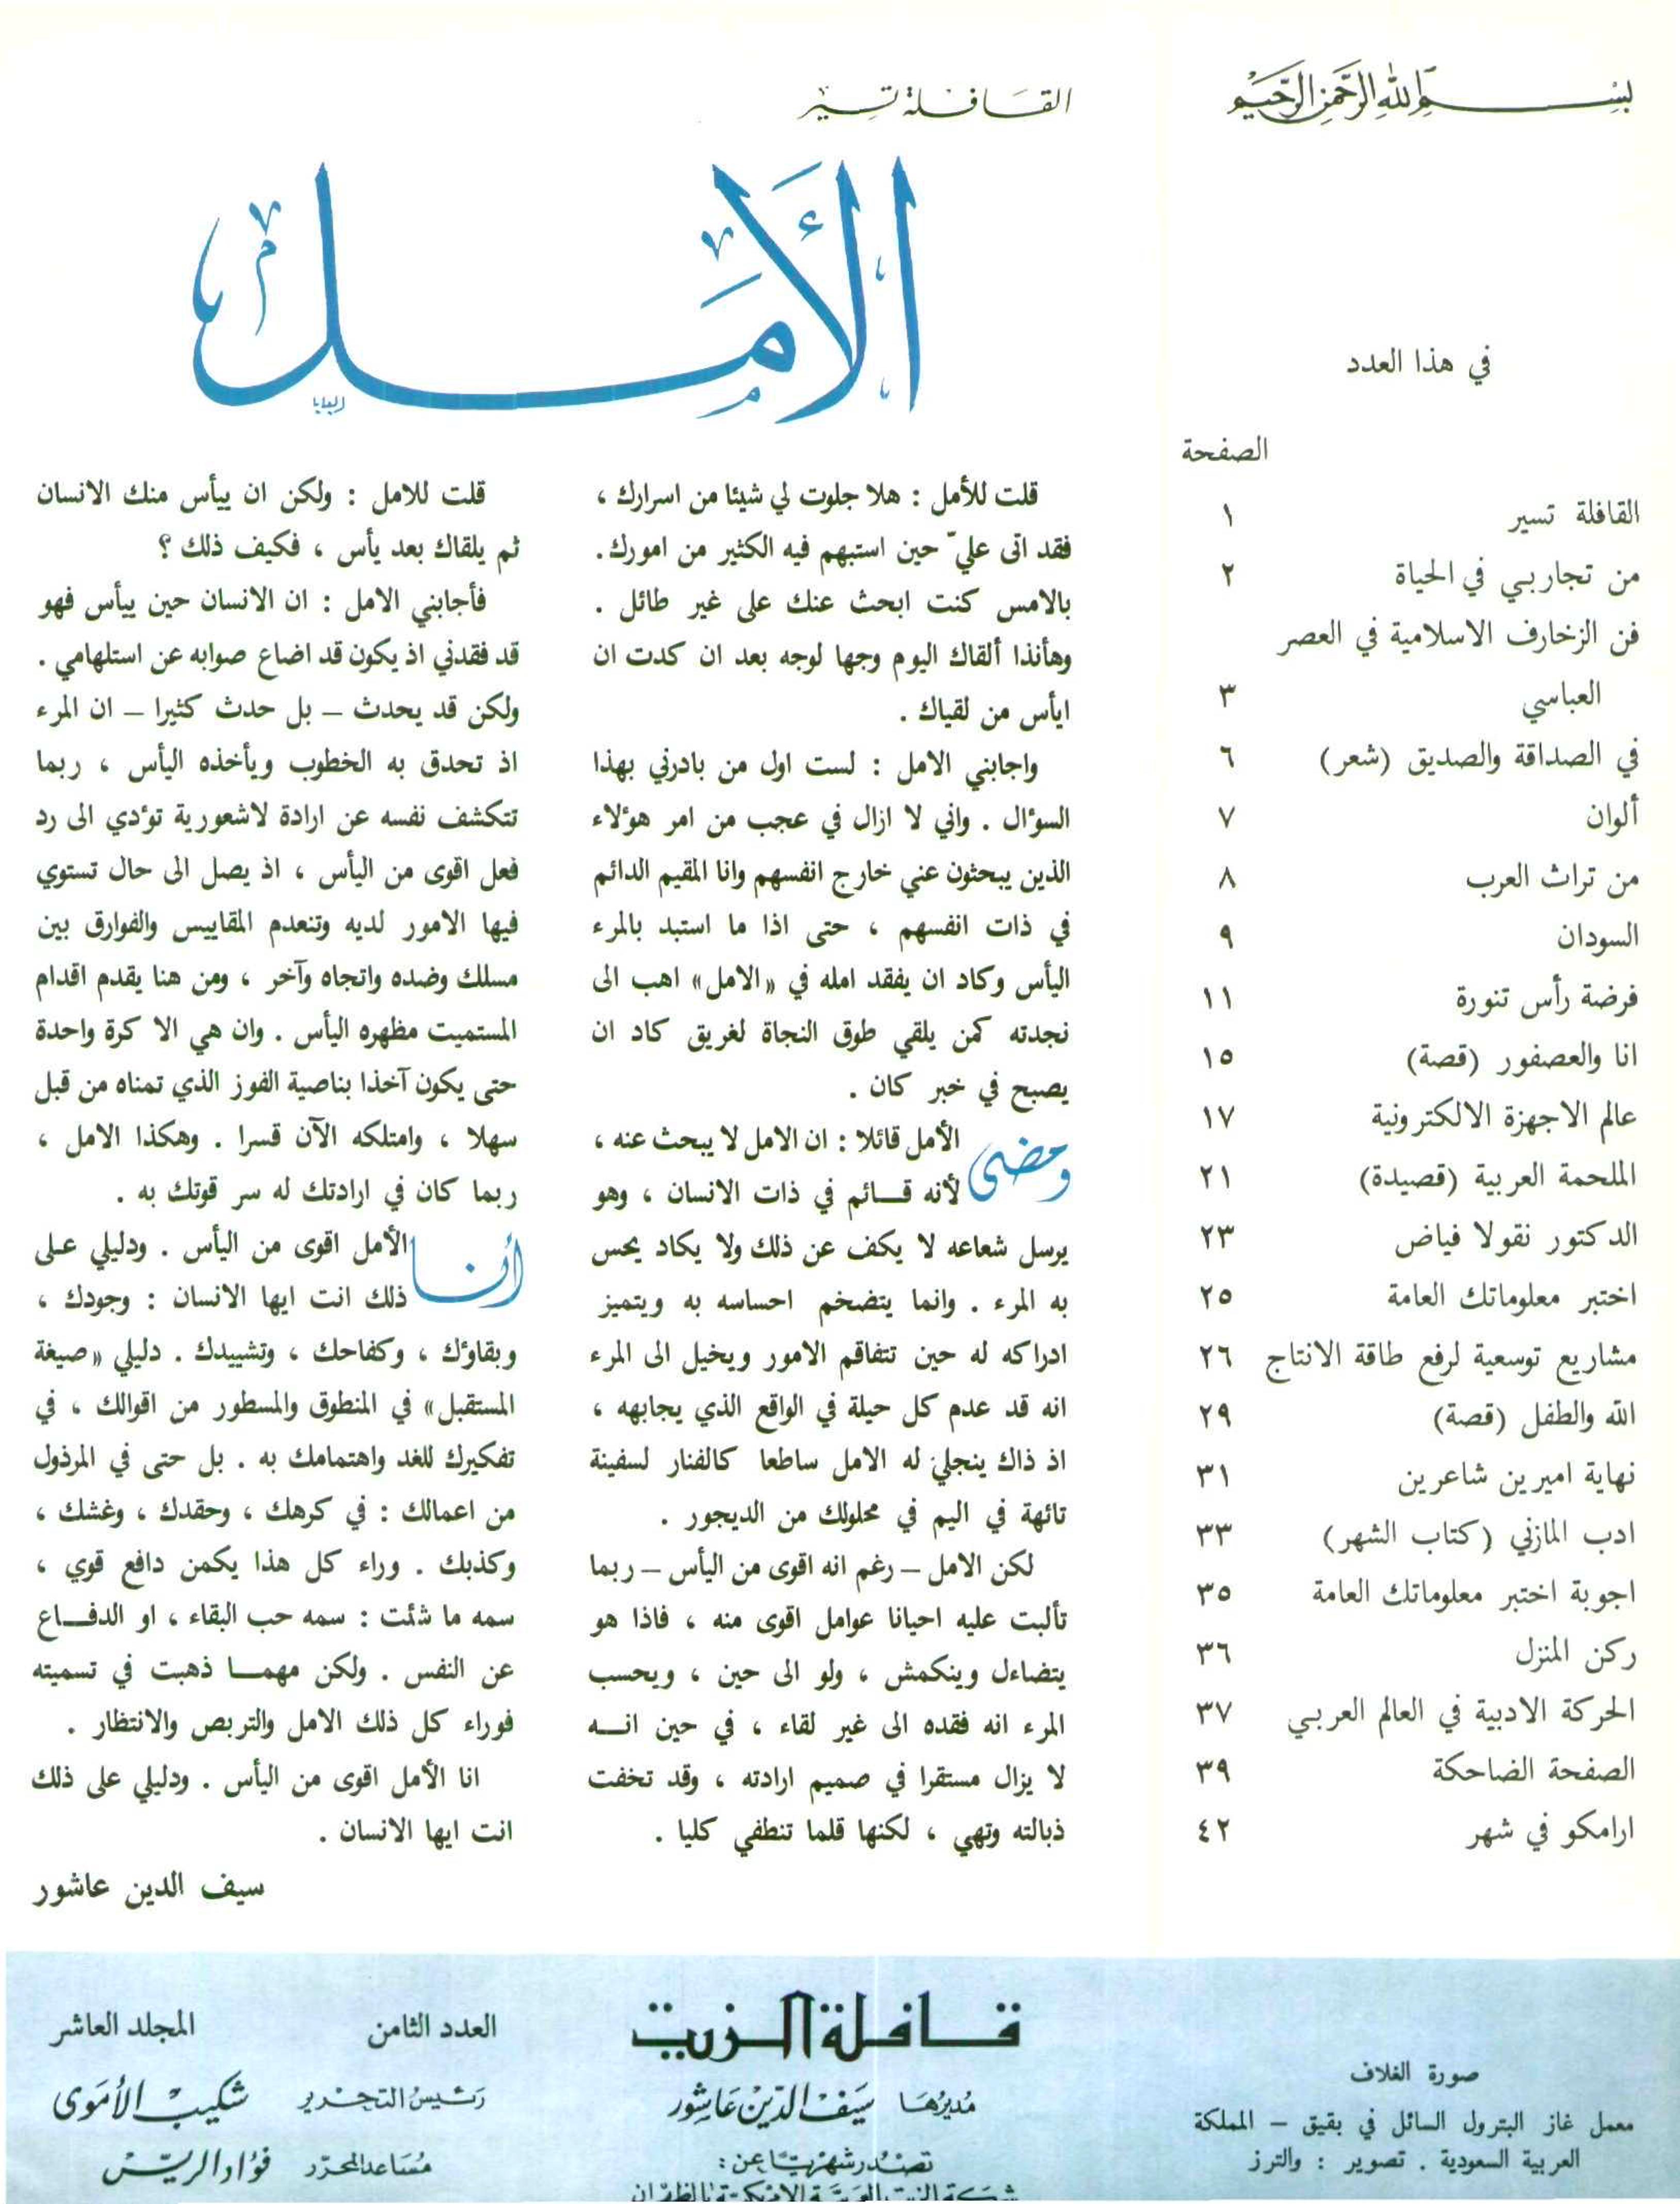 بسم الله الرحمن الرحيم
في هذا العدد
الصفحة
القافلة تسير ١
من تجاربي في الحياة ٢
فن الزخارف الاسلامية في العصر
العباسي ٣
في الصداقة والصديق (شعر) ٦
ألوان ٧
من تراث العرب ٨
السودان ٩
فرضة رأس تنورة ١١
انا والعصفور (قصة) ١٥
عالم الاجهزة الالكترونية ١٧
الملحمة العربية (قصيدة) ٢١
الدكتور نقولا فياض ٢٣
اختبر معلوماتك العامة ٢٥
مشاريع توسعية لرفع طاقة الانتاج ٢٦
الله والطفل (قصة) ٢٩
نهاية اميرين شاعرين ٣١
ادب المازني (كتاب الشهر) ٣٣
اجوبة اختبر معلوماتك العامة ٣٥
ركن المنزل ٣٦
الحركة الادبية في العالم العربي ٣٧
الصفحة الضاحكة ٣٩
ارامكو في شهر ٤٢
القافلة تسير
الأمل
قلت للأمل : هلا جلوت لي شيئا من اسرارك ،
فقد اتى عليّ حين استبهم فيه الكثير من امورك .
بالامس كنت ابحث عنك على غير طائل .
وهأنذا ألقاك اليوم وجها لوجه بعد ان كدت ان
ايأس من لقياك .
واجابني الامل : لست اول من بادرني بهذا
السؤال . واني لا ازال في عجب من امر هؤلاء
الذين يبحثون عني خارج انفسهم وانا المقيم الدائم
في ذات انفسهم ، حتى اذا ما استبد بالمرء
اليأس وكاد ان يفقد امله في «الامل» اهب الى
نجدته كمن يلقي طوق النجاة لغريق كاد ان
يصبح في خبر كان .
ومضى الأمل قائلا : ان الامل لا يبحث عنه ،
لأنه قــائم في ذات الانسان ، وهو
يرسل شعاعه لا يكف عن ذلك ولا يكاد يحس
به المرء . وانما يتضخم احساسه به ويتميز
ادراكه له حين تتفاقم الامور ويخيل الى المرء
انه قد عدم كل حيلة في الواقع الذي يجابهه ،
اذ ذاك ينجلي له الامل ساطعا كالفنار لسفينة
تائهة في اليم في محلولك من الديجور .
لكن الامل – رغم انه اقوى من اليأس – ربما
تألبت عليه احيانا عوامل اقوى منه ، فاذا هو
يتضاءل وينكمش ، ولو الى حين ، ويحسب
المرء انه فقده الى غير لقاء ، في حين انــه
لا يزال مستقرا في صميم ارادته ، وقد تخفت
ذبالته وتهي ، لكنها قلما تنطفي كليا .
قلت للامل : ولكن ان ييأس منك الانسان
ثم يلقاك بعد يأس ، فكيف ذلك ؟
فأجابني الامل : ان الانسان حين ييأس فهو
قد فقدني اذ يكون قد اضاع صوابه عن استلهامي .
ولكن قد يحدث – بل حدث كثيرا – ان المرء
اذ تحدق به الخطوب ويأخذه اليأس ، ربما
تتكشف نفسه عن ارادة لاشعورية تؤدي الى رد
فعل اقوى من اليأس ، اذ يصل الى حال تستوي
فيها الامور لديه وتنعدم المقاييس والفوارق بين
مسلك وضده واتجاه وآخر ، ومن هنا يقدم اقدام
المستميت مظهره اليأس . وان هي الا كرة واحدة
حتى يكون آخذا بناصية الفوز الذي تمناه من قبل
سهلا ، وامتلكه الآن قسرا . وهكذا الامل ،
ربما كان في ارادتك له سر قوتك به .
أنا الأمل اقوى من اليأس . ودليلي على
ذلك انت ايها الانسان : وجودك ،
وبقاؤك ، وكفاحك ، وتشييدك . دليلي «صيغة
المستقبل» في المنطوق والمسطور من اقوالك ، في
تفكيرك للغد واهتمامك به . بل حتى في المرذول
من اعمالك : في كرهك ، وحقدك ، وغشك ،
وكذبك . وراء كل هذا يكمن دافع قوي ،
سمه ما شئت : سمه حب البقاء ، او الدفــاع
عن النفس . ولكن مهمــا ذهبت في تسميته
فوراء كل ذلك الامل والتربص والانتظار .
انا الأمل اقوى من اليأس . ودليلي على ذلك
انت ايها الانسان .
سيف الدين عاشور
صورة الغلاف
معمل غاز البترول السائل في بقيق – المملكة
العربية السعودية . تصوير : والترز
قافلة الزيت
مديرها سيف الدين عاشور
تصدر شهريا عن :
شركة الزيت العربية الامريكية بالظهران
العدد الثامن المجلد العاشر
رئيس التحرير شكيب الأموى
مساعد المحرر فؤاد الريس